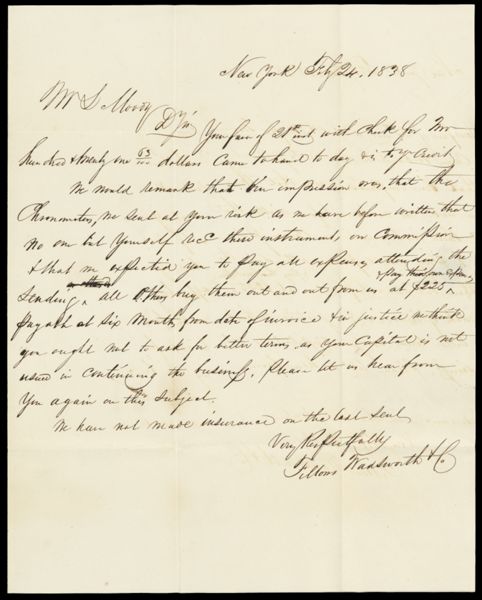 New York Feby 24, 1838
Mr S Moody
D Sir Your favr of 21st inst with Check for Two
Hundred & twenty one 63/100 dollars Came to hand to day & is to yr Credit
We would remark that our impression was, that the
Chronometers, we sent at your risk as we have before written that
no one but yourself rec'd these instruments on Commission
& that we expected you to pay all expenses attending the
& pay their own expenses,
sending, all others buy them out and out from us at $225
payable at Six Months from date of invoice & in justice we think
you ought not to ask for better terms as your Capital is not
used in Continuing the business. Please let us hear from
You again on this subject.
We have not made insurance on the last sent
Very Respectfully
Fellows Wadsworth & Co